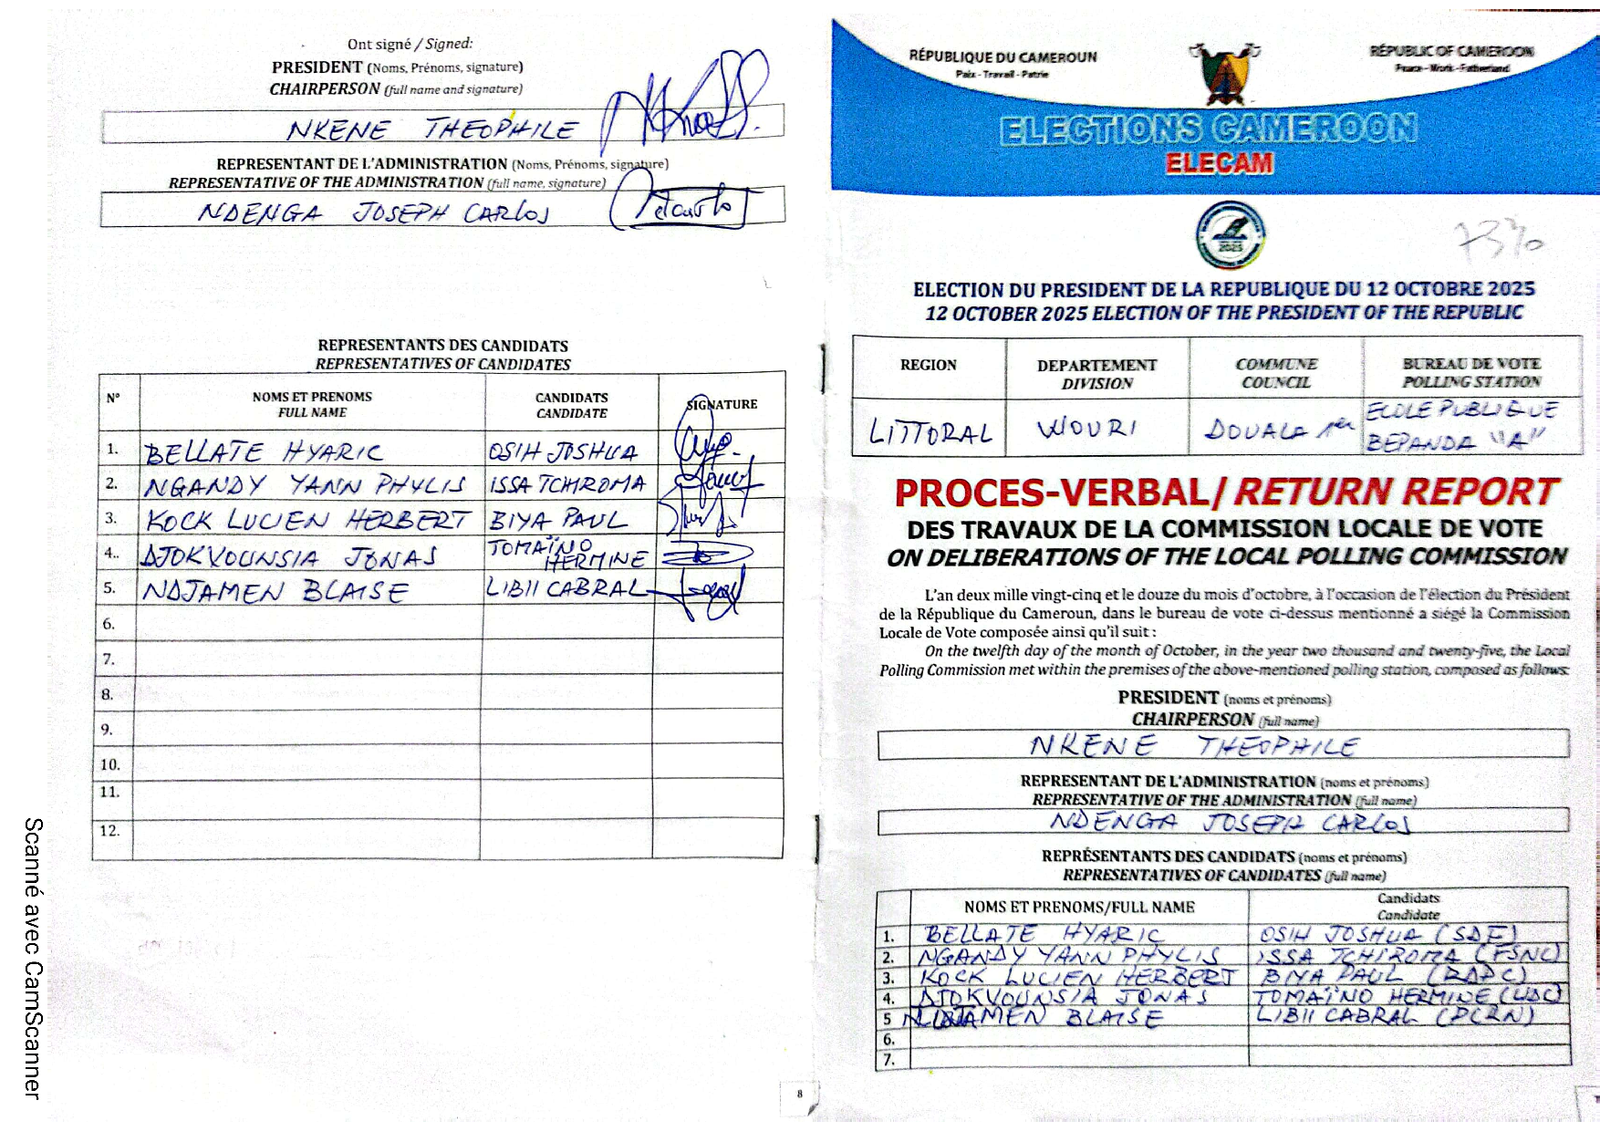 Ont signé / Signed:
PRESIDENT (Noms, Prénoms, signature)
CHAIRPERSON (full name and signature)
NKENE THEOPHILE
REPRESENTANT DE L'ADMINISTRATION (Noms, Prénoms, signature)
REPRESENTATIVE OF THE ADMINISTRATION (full name, signature)
NDENGA JOSEPH CARLOS
REPRESENTANTS DES CANDIDATS
REPRESENTATIVES OF CANDIDATES
N° NOMS ET PRENOMS FULL NAME CANDIDATS CANDIDATE SIGNATURE
1. BELLATE HYARIC OSIH JOSHUA
2. NGANDY YANN PHYLIS ISSA TCHIROMA
3. KOCK LUCIEN HERBERT BIYA PAUL
4.. DJOKVOUNSIA JONAS TOMAÏNO HERMINE
5. NDJAMEN BLAISE LIBII CABRAL
6.
7.
8.
9.
10.
11.
12.
8
Scanné avec CamScanner
RÉPUBLIQUE DU CAMEROUN
Paix - Travail - Patrie
RÉPUBLIC OF CAMEROON
Peace - Work - Fatherland
ELECTIONS CAMEROON
ELECAM
2025
73%
ELECTION DU PRESIDENT DE LA REPUBLIQUE DU 12 OCTOBRE 2025
12 OCTOBER 2025 ELECTION OF THE PRESIDENT OF THE REPUBLIC
REGION DEPARTEMENT DIVISION COMMUNE COUNCIL BUREAU DE VOTE POLLING STATION
LITTORAL WOURI DOUALA 1er ECOLE PUBLIQUE BEPANDA "A"
PROCES-VERBAL/ RETURN REPORT
DES TRAVAUX DE LA COMMISSION LOCALE DE VOTE
ON DELIBERATIONS OF THE LOCAL POLLING COMMISSION
L'an deux mille vingt-cinq et le douze du mois d'octobre, à l'occasion de l'élection du Président
de la République du Cameroun, dans le bureau de vote ci-dessus mentionné a siégé la Commission
Locale de Vote composée ainsi qu'il suit :
On the twelfth day of the month of October, in the year two thousand and twenty-five, the Local
Polling Commission met within the premises of the above-mentioned polling station, composed as follows:
PRESIDENT (noms et prénoms)
CHAIRPERSON (full name)
NKENE THEOPHILE
REPRESENTANT DE L'ADMINISTRATION (noms et prénoms)
REPRESENTATIVE OF THE ADMINISTRATION (full name)
NDENGA JOSEPH CARLOS
REPRÉSENTANTS DES CANDIDATS (noms et prénoms)
REPRESENTATIVES OF CANDIDATES (full name)
NOMS ET PRENOMS/FULL NAME Candidats Candidate
1. BELLATE HYARIC OSIH JOSHUA (SDF)
2. NGANDY YANN PHYLIS ISSA TCHIROMA (FSNC)
3. KOCK LUCIEN HERBERT BIYA PAUL (RDPC)
4. DJOKVOUNSIA JONAS TOMAÏNO HERMINE (UDC)
5 NDJAMEN BLAISE LIBII CABRAL (PCRN)
6.
7.